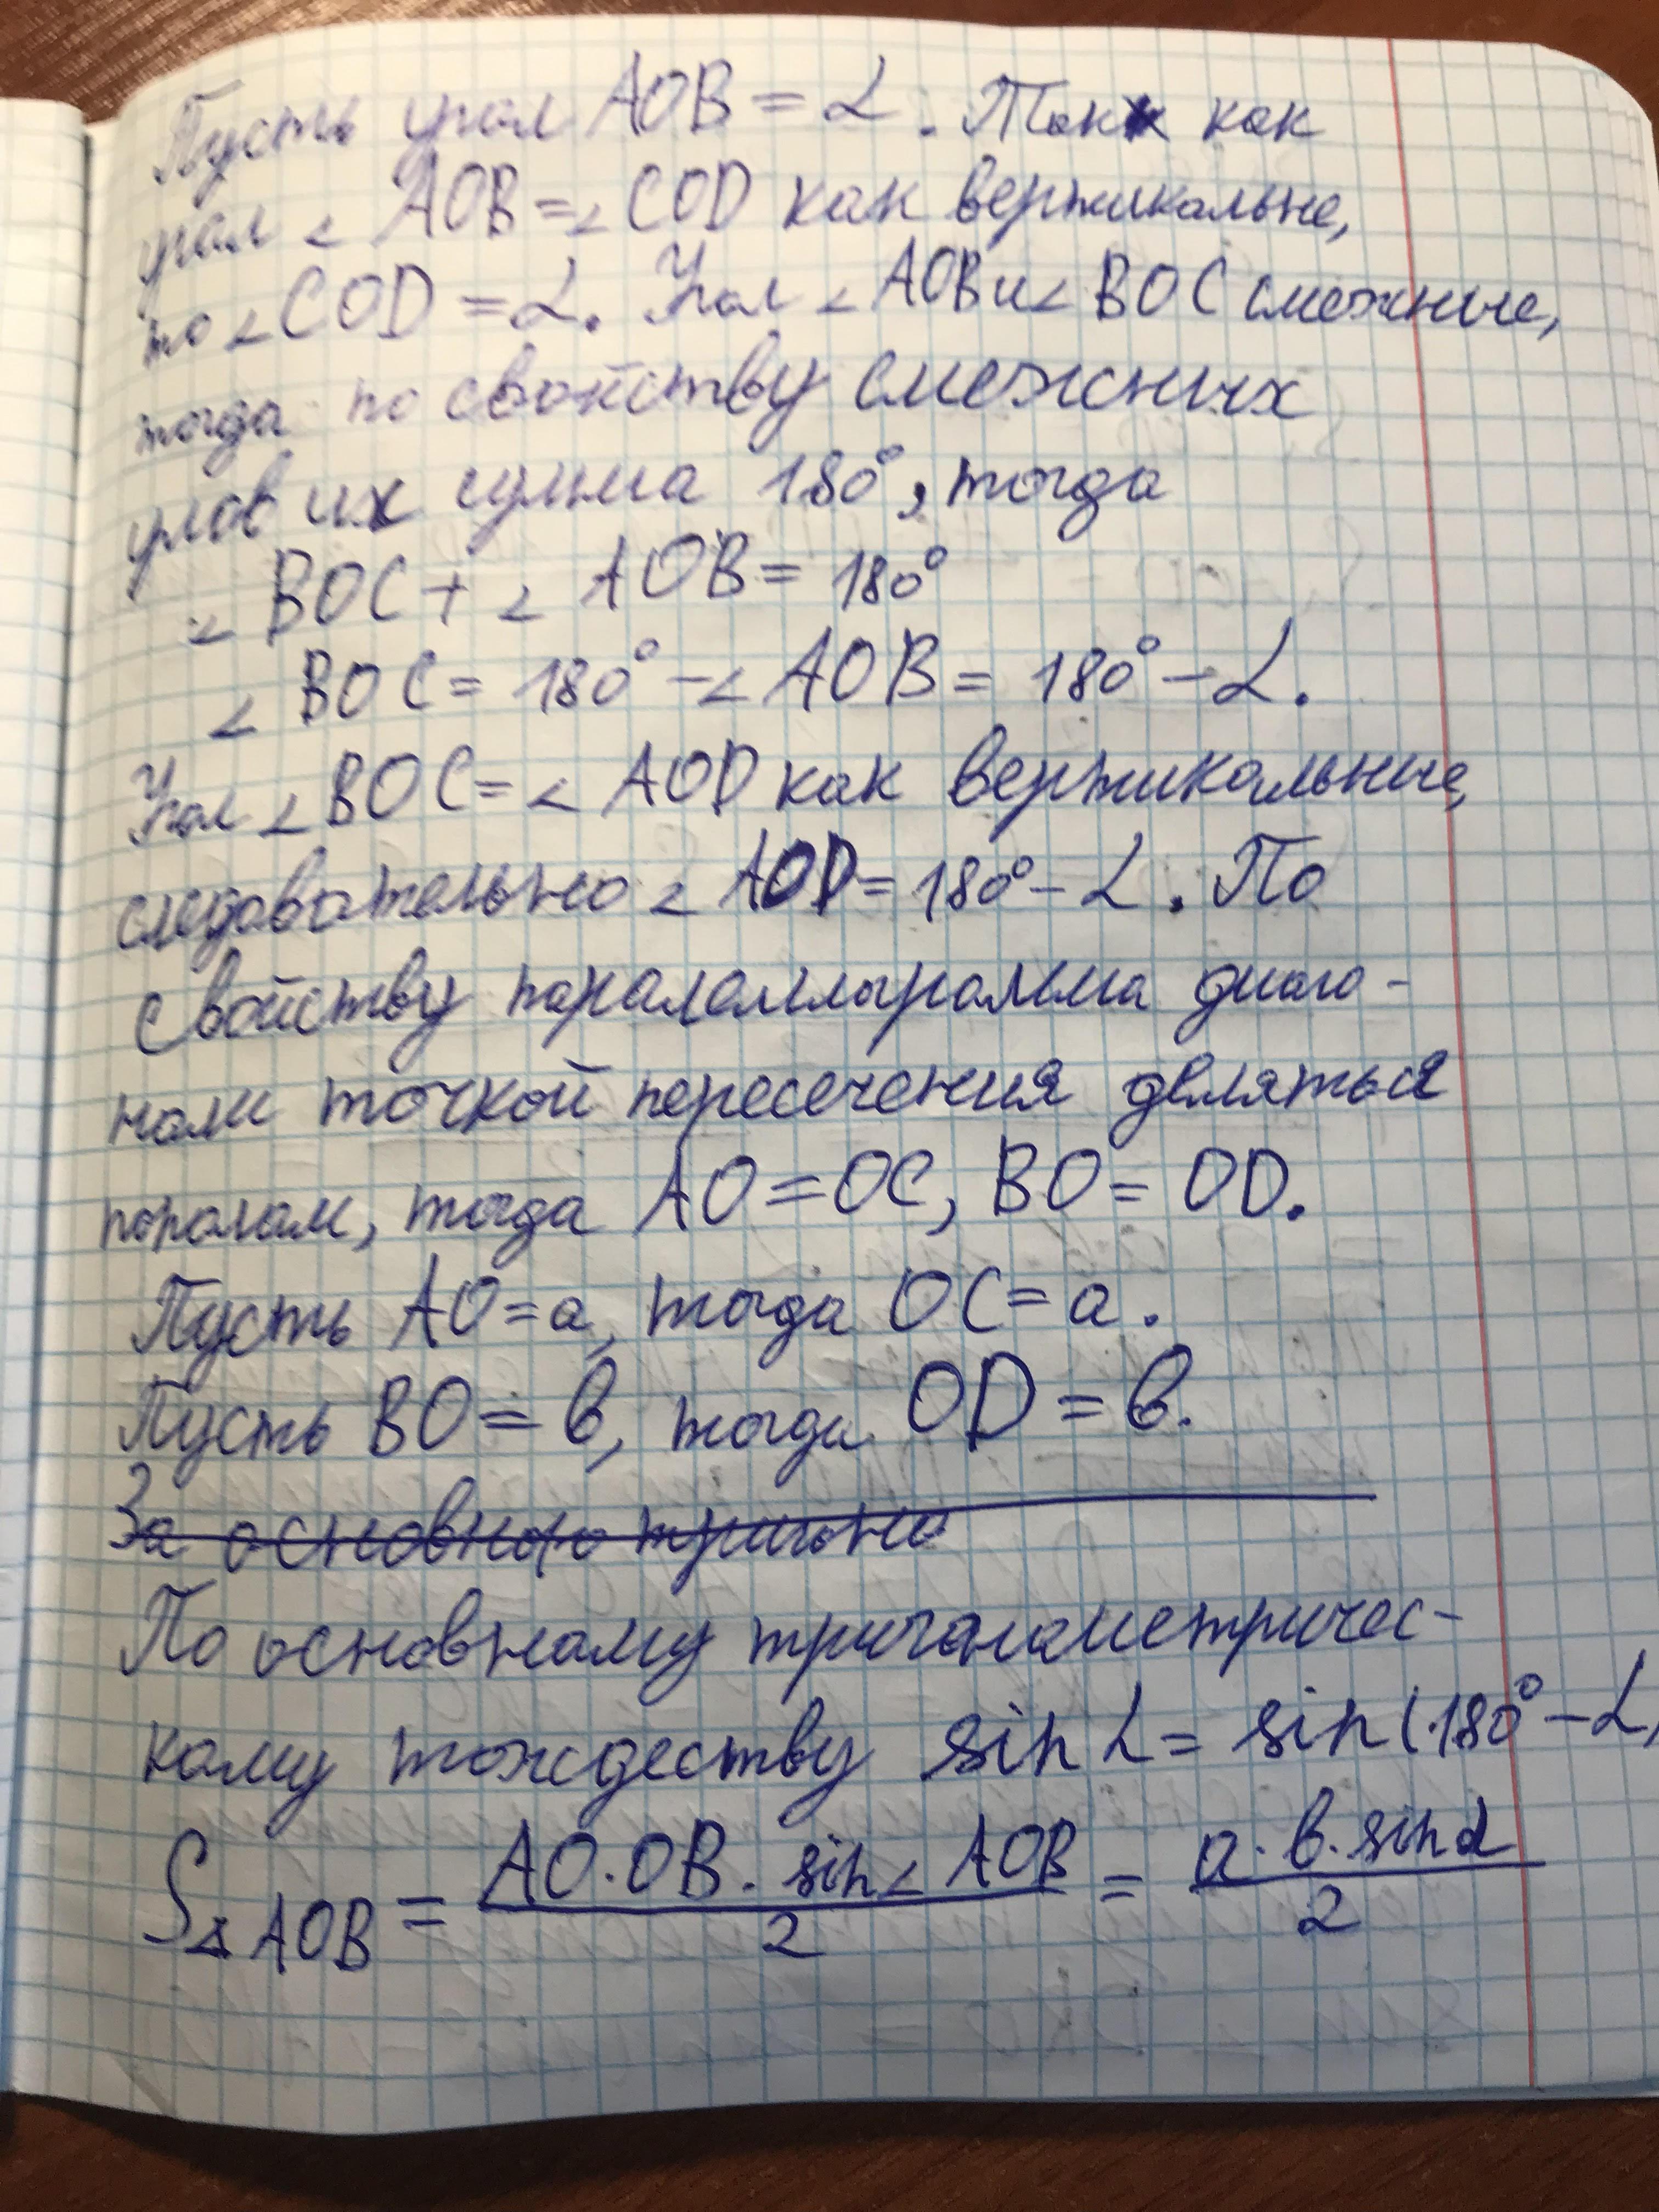 Пусть угол AOB = α. Так как
угол ∠ AOB = ∠ COD как вертикальне,
то ∠ COD = α. Угол ∠ AOB и ∠ BOC смежные,
тогда по свойству смежных
углов их сумма 180°, тогда
∠ BOC + ∠ AOB = 180°
∠ BOC = 180° - ∠ AOB = 180° - α.
Угол ∠ BOC = ∠ AOD как вертикальные,
следовательно ∠ AOD = 180° - α. По
свойству паралеллыграмма диаго-
нали точкой пересечения деляться
пополам, тогда AO = OC, BO = OD.
Пусть AO = a, тогда OC = a.
Пусть BO = в, тогда OD = в.
За основною тригоно
По основному тригонометричес-
кому тождеству sin α = sin (180° - α)
S△ AOB = AO · OB · sin ∠ AOB / 2 = a · в · sin α / 2